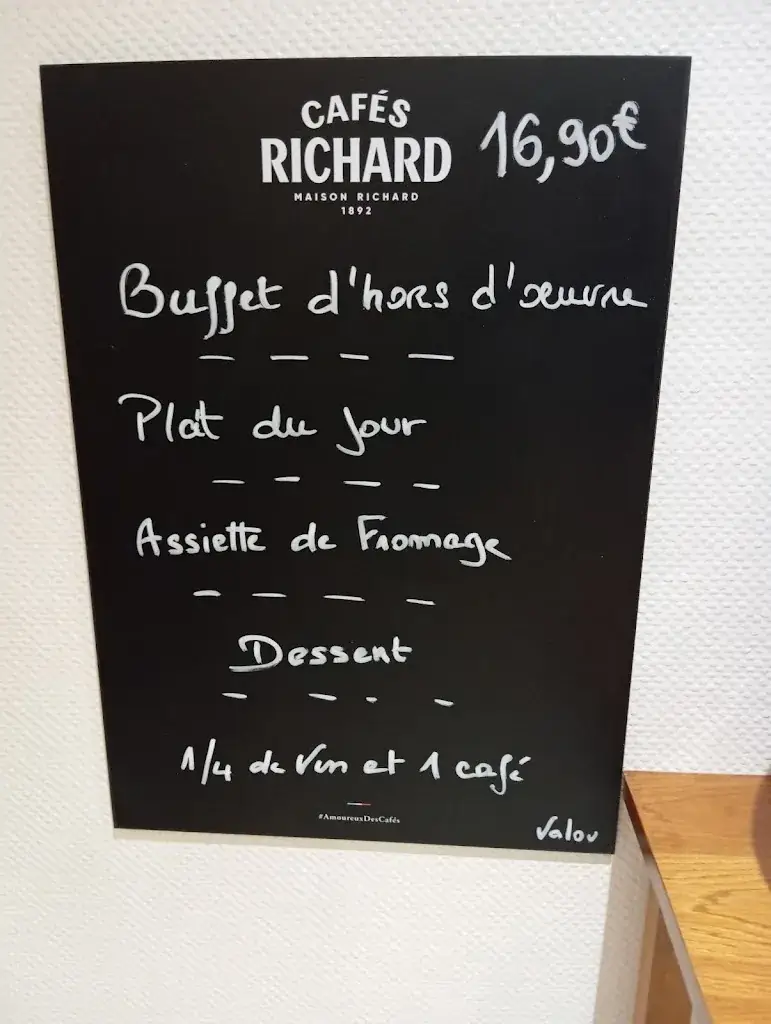 CAFÉS
RICHARD
MAISON RICHARD
1892
16,90€
Buffet d'hors d'œuvre
Plat du jour
Assiette de Fromage
Dessert
1/4 de Vin et 1 café
#AmoureuxDesCafés
Valou